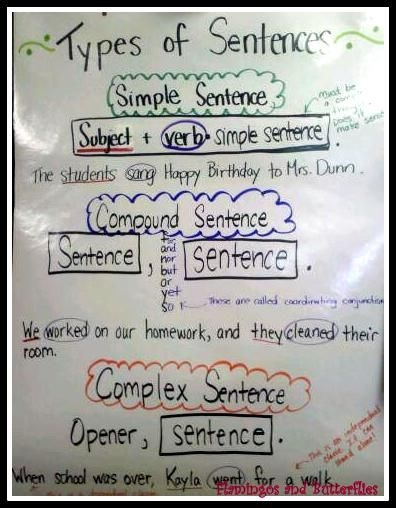 Types of Sentences
Simple Sentence
must be
a
Does it
make sense
Subject + verb = simple sentence
The students sang Happy Birthday to Mrs. Dunn.
Compound Sentence
Sentence , for
and
nor
but
or
yet
so
sentence .
These are called coordinating conjunction
We worked on our homework, and they cleaned their
room.
Complex Sentence
Opener, sentence .
This is an independent
clause. It can
stand alone!
When school was over, Kayla went for a walk.
Flamingos and Butterflies